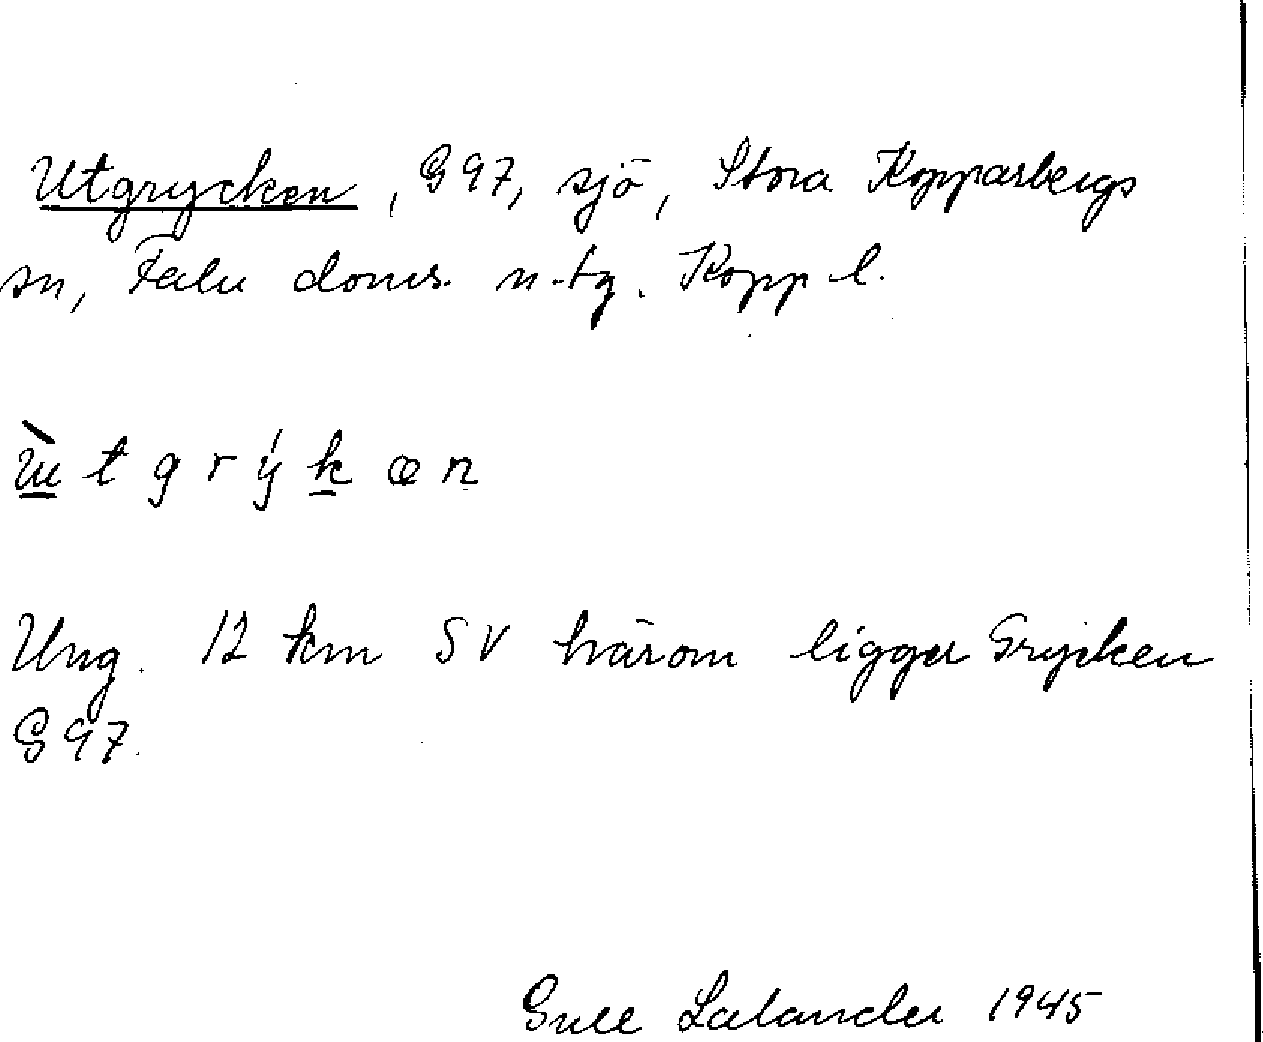 Utgrycken, G 97, sjö, Stora Kopparbergs
sn, Falu doms. n. tg. Kopp l.
ù̱ t g r ý ḵ œ n
Ung. 12 km SV härom ligger Grycken
G 97.
Gull Lalander 1945